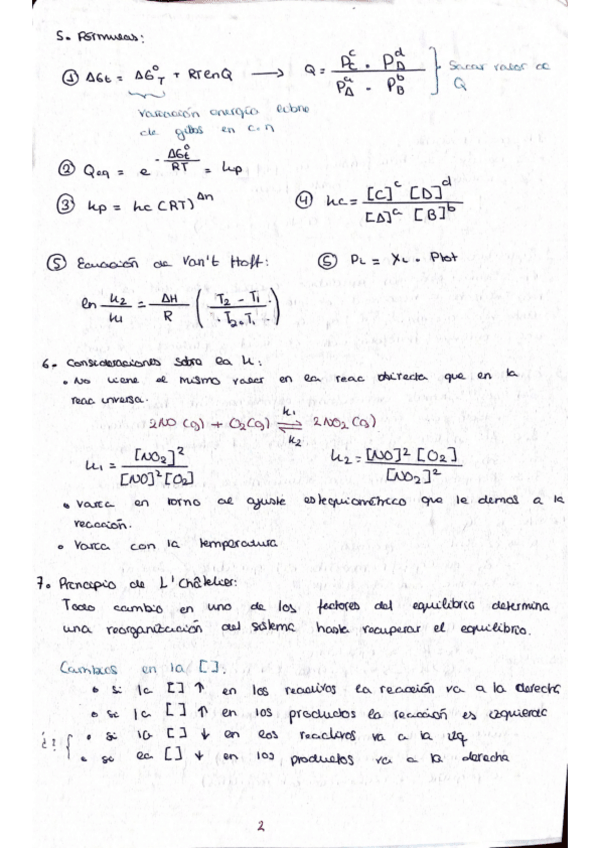 5. Fórmulas:
① ΔGt = ΔG°T + RTlnQ → Q = P_C^c · P_D^d / P_A^a · P_B^b } Sacar valor de Q
Variación energía libre
de gibbs en c.n
② Qeq = e^(-ΔG°t/RT) = Kp
③ Kp = Kc (RT)^Δn ④ Kc = [C]^c [D]^d / [A]^a [B]^b
⑤ Ecuación de Van't Hoff: ⑤ PL = XL · Ptot
ln K2/K1 = ΔH/R ( T2 - T1 / T2 · T1 )
6. Consideraciones sobre la K:
• No tiene el mismo valor en la reac directa que en la
reac inversa.
2NO (g) + O2 (g) ⇌ 2NO2 (g) K1 K2
K1 = [NO2]² / [NO]² [O2] K2 = [NO]² [O2] / [NO2]²
• Varía en torno al ajuste estequiométrico que le demos a la
reacción.
• Varía con la temperatura
7. Principio de L'Châtelier:
Todo cambio en uno de los factores del equilibrio determina
una reorganización del sistema hasta recuperar el equilibrio.
Cambios en la []:
• si la [] ↑ en los reactivos la reacción va a la derecha
• si la [] ↑ en los productos la reacción es izquierda
¿? { • si la [] ↓ en los reactivos va a la izq
• si la [] ↓ en los productos va a la derecha
2